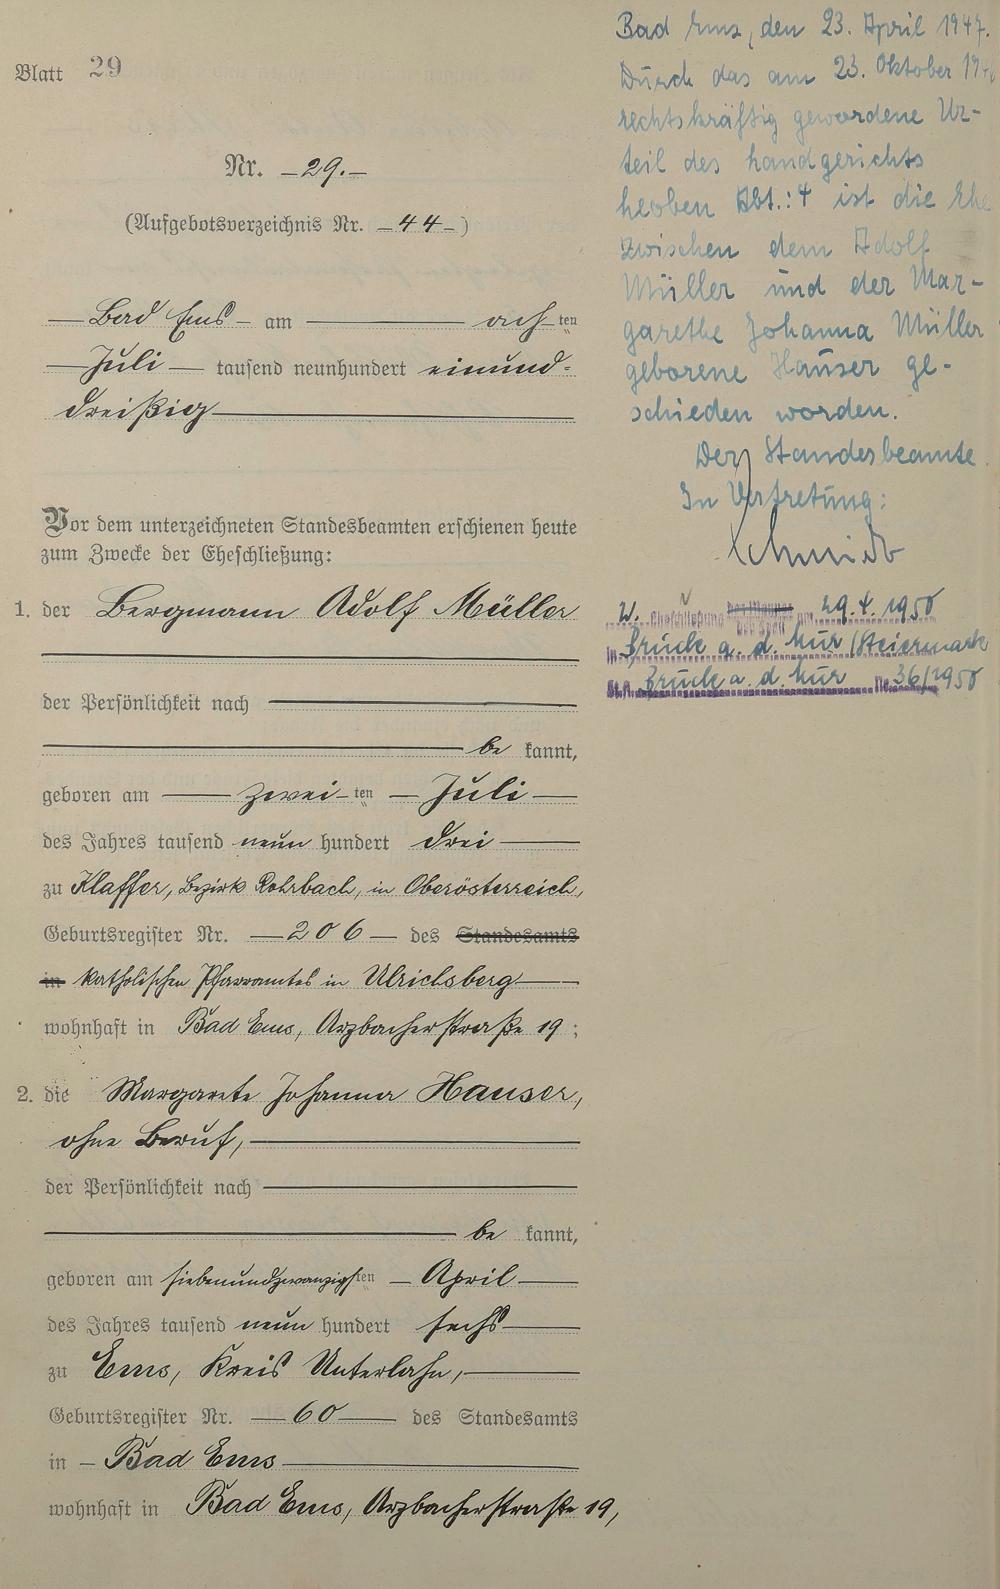 Blatt 29
Nr. —29.—
(Aufgebotsverzeichnis Nr. —44—)
— Bad Ems — am — achten
— Juli — tausend neunhundert einund-
dreißig —
Vor dem unterzeichneten Standesbeamten erschienen heute
zum Zwecke der Eheschließung:
1. der Bergmann Adolf Müller
der Persönlichkeit nach —
— be kannt,
geboren am — zwei-ten — Juli —
des Jahres tausend neun hundert drei —
zu Klaffer, Bezirk Rohrbach, in Oberösterreich,
Geburtsregister Nr. —206— des Standesamts
in katholischen Pfarramtes in Ulrichsberg —
wohnhaft in Bad Ems, Arzbacherstraße 19;
2. die Margarete Johanna Hauser,
ohne Beruf, —
der Persönlichkeit nach —
— be kannt,
geboren am siebenundzwanzigsten — April —
des Jahres tausend neun hundert sechs —
zu Ems, Kreis Unterlahn, —
Geburtsregister Nr. —60— des Standesamts
in — Bad Ems —
wohnhaft in Bad Ems, Arzbacherstraße 19,
Bad Ems, den 23. April 1947.
Durch das am 23. Oktober 194
rechtskräftig gewordene Ur-
teil des Landgerichts
Abt.: 4 ist die Ehe
zwischen dem Adolf
Müller und der Mar-
garethe Johanna Müller
geborene Hauser ge-
schieden worden.
Der Standesbeamte
In Vertretung:
Schmidt
2. Eheschließung des Mannes am 29.4.1950
in Bruck a. d. Mur / Steiermark
St.A. Bruck a. d. Mur Nr. 36/1950